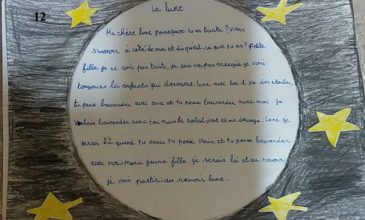 12
La lune
Ma chère lune pourquoi tu es triste? viens
t'assoir à côté de moi et dis
fille je ne suis pas triste, je suis un peu ennuyée je vois
toujours les enfants qui dorment. lune avec toi il y a des étoiles
tu peux bavarder avec eux et tu peux bavarder avec moi. Je
bavarder avec mais le soleil vient et me lune je
serais là quand tu veux tu peux venir et tu peux bavarder
avec moi merci jeune fille je serais là et au revoir
je vais partir au revoir lune.